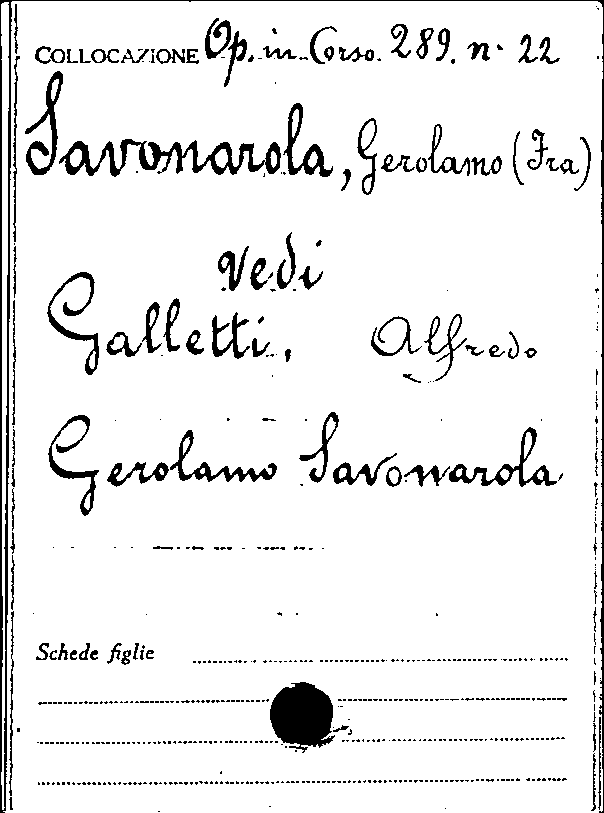 COLLOCAZIONE Op. in Corso. 289. n. 22
Savonarola, Gerolamo (Fra)
Vedi
Galletti, Alfredo
Gerolamo Savonarola
Schede figlie